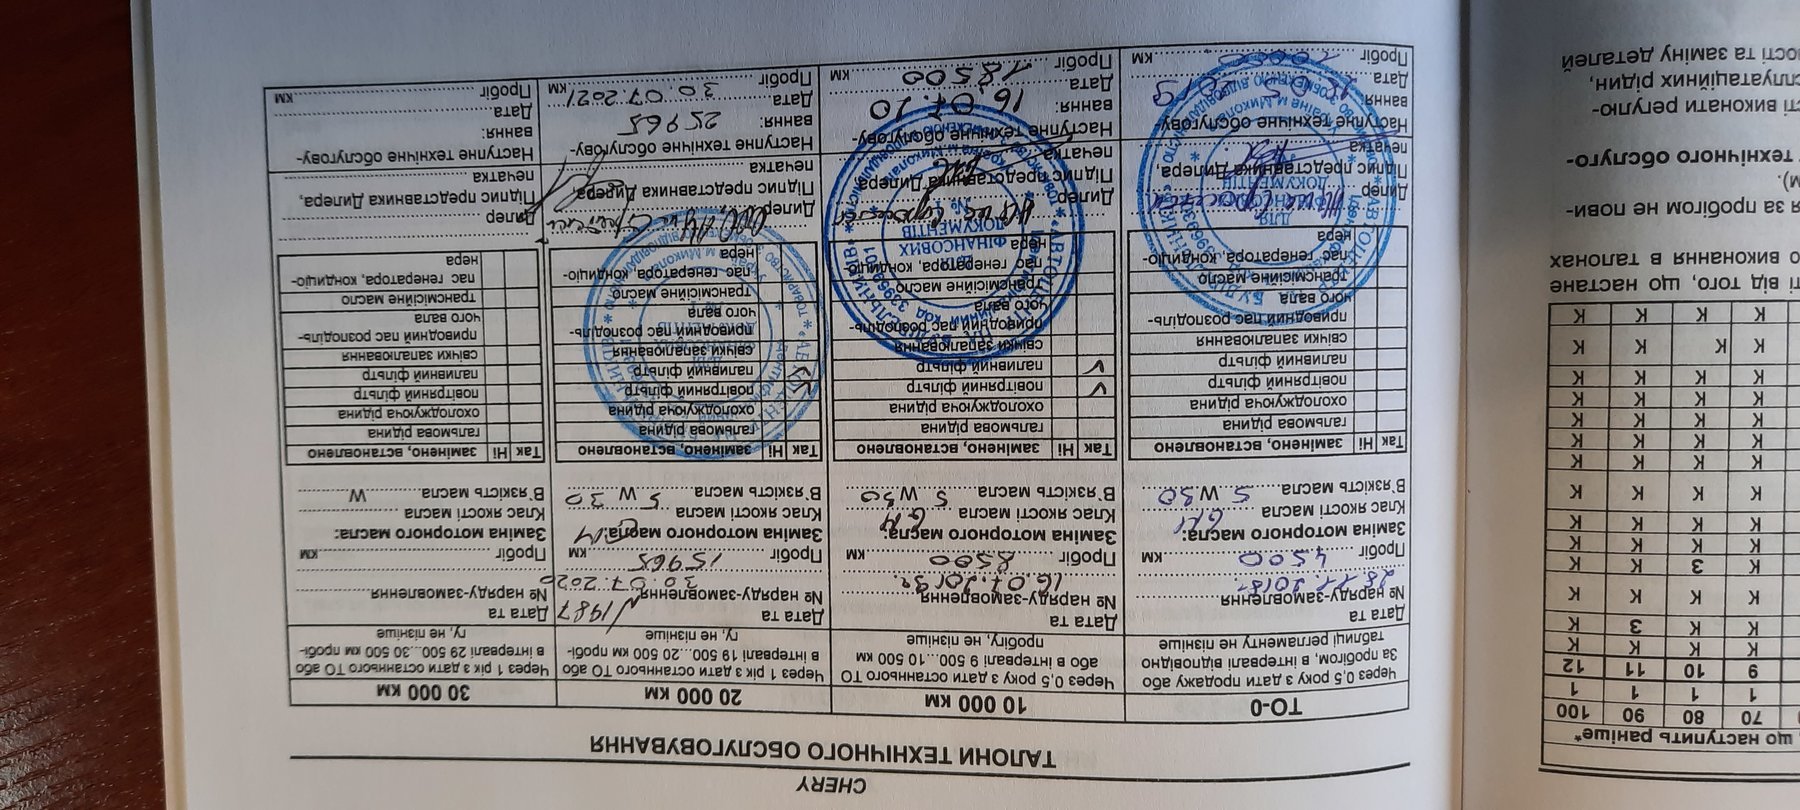 CHERY
ТАЛОНИ ТЕХНІЧНОГО ОБСЛУГОВУВАННЯ
ТО-0
Через 0,5 року з дати продажу або
За пробігом, в інтервалі відповідно
таблиці регламенту не пізніше
Дата та
№ наряду-замовлення
Пробіг 4500 км
Заміна моторного масла:
Клас якості масла
В'язкість масла 5 W30
Так Ні замінено, встановлено
гальмова рідина
охолоджуюча рідина
повітряний фільтр
паливний фільтр
свічки запалювання
приводний пас розподіль-
чого вала
трансмісійне масло
пас генератора, кондиціо-
нера
Дилер
Підпис представника Дилера,
печатка
Наступне технічне обслугову-
вання:
Дата
Пробіг км
10 000 км
Через 0,5 року з дати останнього ТО
або в інтервалі 9 500...10 500 км
пробігу, не пізніше
Дата та
№ наряду-замовлення
16.07.2019
Пробіг 8500 км
Заміна моторного масла:
Клас якості масла
В'язкість масла 5 W30
Так Ні замінено, встановлено
гальмова рідина
охолоджуюча рідина
повітряний фільтр
паливний фільтр
свічки запалювання
приводний пас розподіль-
чого вала
трансмісійне масло
пас генератора, кондиціо-
нера
Дилер
Підпис представника Дилера
печатка
Наступне технічне обслугову-
вання:
Дата 16.07.20
Пробіг 18500 км
20 000 км
Через 1 рік з дати останнього ТО або
в інтервалі 19 500...20 500 км пробі-
гу, не пізніше
Дата та 1987
№ наряду-замовлення 30.07.2020
Пробіг 15965 км
Заміна моторного масла:
Клас якості масла
В'язкість масла 5 W 30
Так Ні замінено, встановлено
гальмова рідина
охолоджуюча рідина
повітряний фільтр
паливний фільтр
свічки запалювання
приводний пас розподіль-
чого вала
трансмісійне масло
пас генератора, кондиціо-
нера
Дилер
Підпис представника Дилера,
печатка
Наступне технічне обслугову-
вання: 25965
Дата 30.07.2021
Пробіг км
30 000 км
Через 1 рік з дати останнього ТО або
в інтервалі 29 500...30 500 км пробі-
гу, не пізніше
Дата та
№ наряду-замовлення
Пробіг км
Заміна моторного масла:
Клас якості масла
В'язкість масла W
Так Ні замінено, встановлено
гальмова рідина
охолоджуюча рідина
повітряний фільтр
паливний фільтр
свічки запалювання
приводний пас розподіль-
чого вала
трансмісійне масло
пас генератора, кондиціо-
нера
Дилер
Підпис представника Дилера,
печатка
Наступне технічне обслугову-
вання:
Дата
Пробіг км
що наступить раніше*
70 80 90 100
1 1 1 1
9 10 11 12
К К К К
К К З К
К К К К
К З К К
К К К К
К К К К
К К К К
К К К К
К К К К
К К К К
К К К К
К К К К
К К К К
К К К К
К К К К
ті від того, що настане
о виконання в талонах
я за пробігом не пови-
м).
технічного обслуго-
ті виконати регулю-
сплуатаційних рідин,
ості та заміну деталей